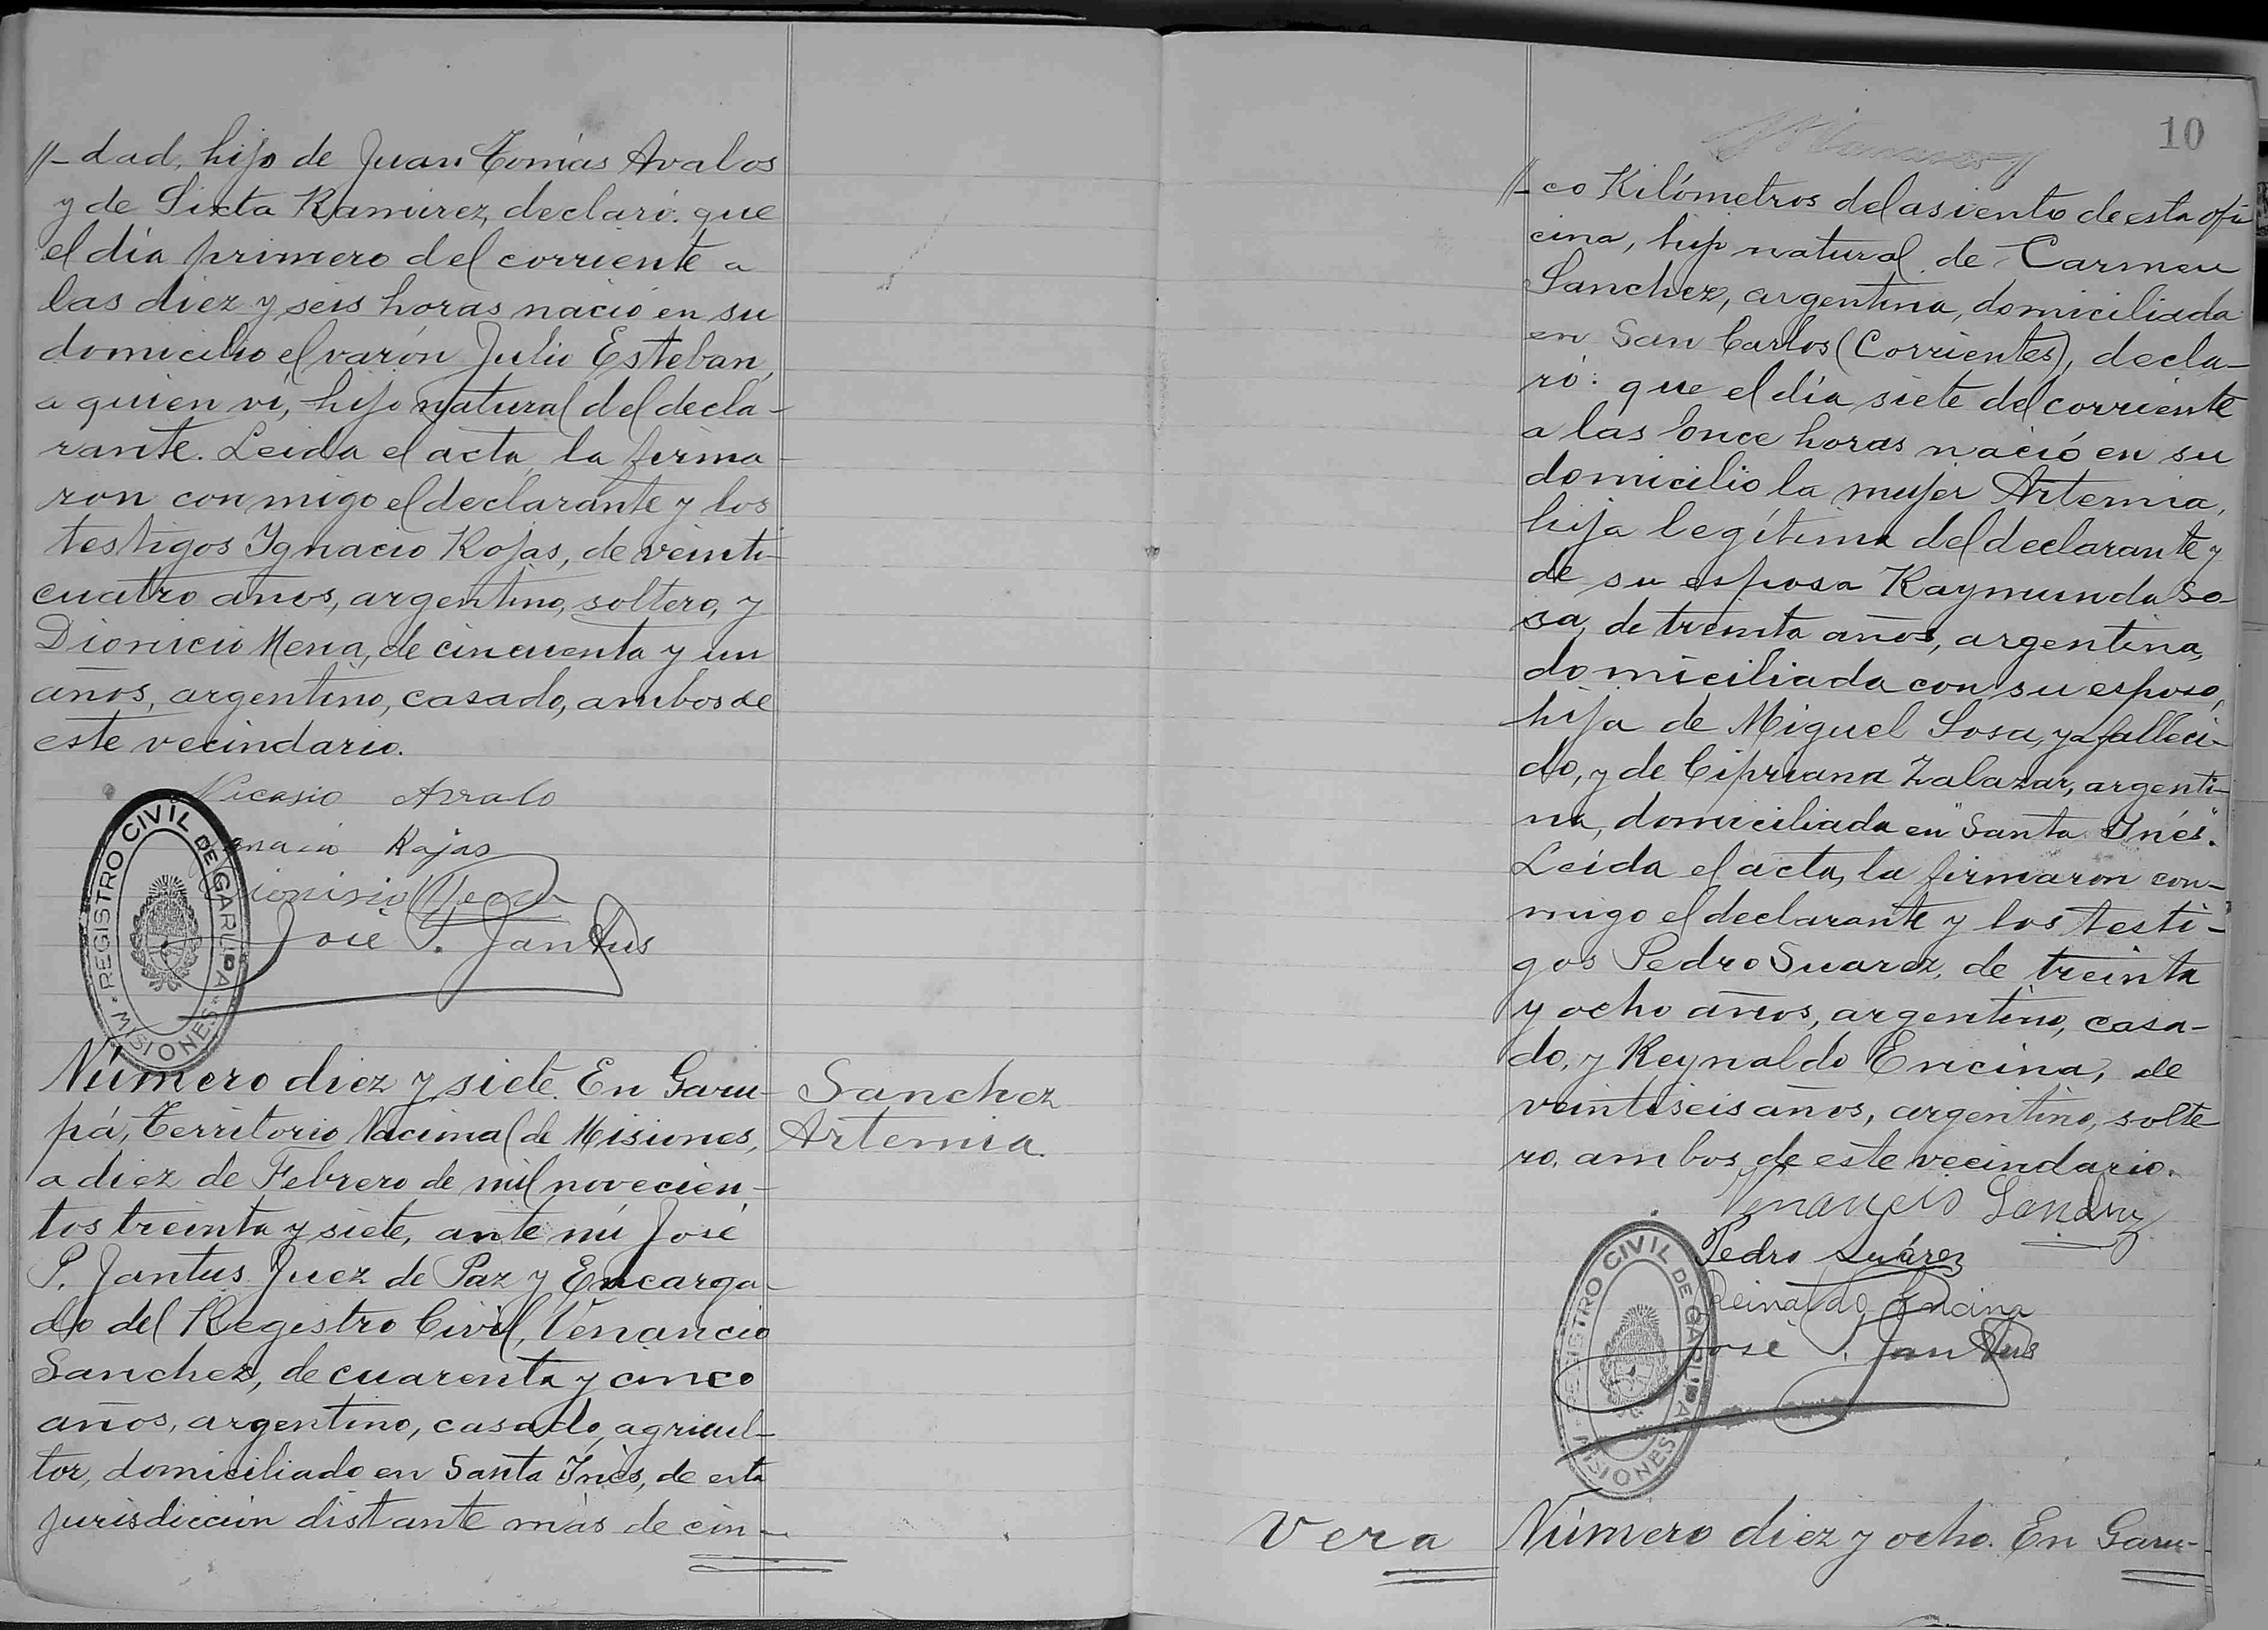 //-dad, hijo de Juan Tomás Avalos
y de Sixta Ramirez, declaró: que
el día primero del corriente a
las diez y seis horas nació en su
domicilio el varón Julio Esteban,
a quien ví, hijo natural del decla-
rante. Leida el acta, la firma-
ron conmigo el declarante y los
testigos Ygnacio Rojas, de veinti-
cuatro años, argentino, soltero, y
Dionicio Mena, de cincuenta y un
años, argentino, casado, ambos de
este vecindario.
Nicasio Avalo
Rojas
José P. Jantus
REGISTRO CIVIL DE GARUPA
MISIONES
Número diez y siete. En Garu-
pá, Territorio Nacional de Misiones,
a diez de Febrero de mil novecien-
tos treinta y siete, ante mí José
P. Jantus Juez de Paz y Encarga-
do del Registro Civil, Venancio
Sanchez, de cuarenta y cinco
años, argentino, casado, agricul-
tor, domiciliado en Santa Ynés, de esta
jurisdicción distante más de cin-
Sanchez
Artemia.
10
//-co Kilómetros del asiento de esta ofi-
cina, hijo natural de Carmen
Sanchez, argentina, domiciliada
en San Carlos (Corrientes), decla-
ró: que el día siete del corriente
a las once horas nació en su
domicilio la mujer Artemia,
hija legítima del declarante y
de su esposa Raymunda So-
sa, de treinta años, argentina,
domiciliada con su esposo,
hija de Miguel Sosa, ya falleci-
do, y de Cipriana Zalazar, argenti-
na, domiciliada en "Santa Ynés".
Leída el acta, la firmaron con-
migo el declarante y los testi-
gos Pedro Suarez, de treinta
y ocho años, argentino, casa-
do, y Reynaldo Encina, de
veintiseis años, argentino, solte-
ro, ambos de este vecindario.
Venancio Sanchez
Pedro Suárez
Reinaldo Encina
José P. Jantus
REGISTRO CIVIL DE GARUPA
MISIONES
Vera
Número diez y ocho. En Garu-